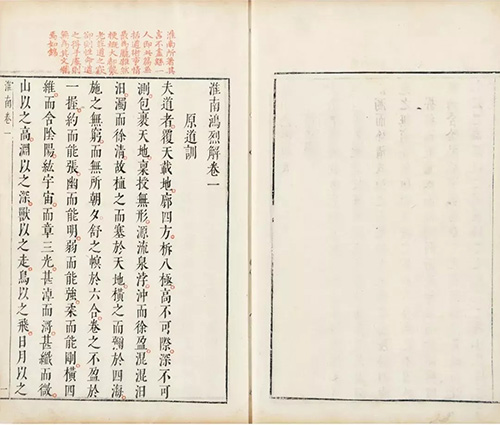 淮南鴻烈解卷一
原道訓
夫道者覆天載地廓四方柝八極高不可際深不可
測包裹天地稟授無形源流泉浡沖而徐盈混混汩
汩濁而徐清故植之而塞於天地橫之而彌於四海
施之無窮而無所朝夕舒之幎於六合卷之不盈於
一握約而能張幽而能明弱而能強柔而能剛橫四
維而含陰陽紘宇宙而章三光甚淖而滒甚纖而微
山以之高淵以之深獸以之走鳥以之飛日月以之
淮南卷一